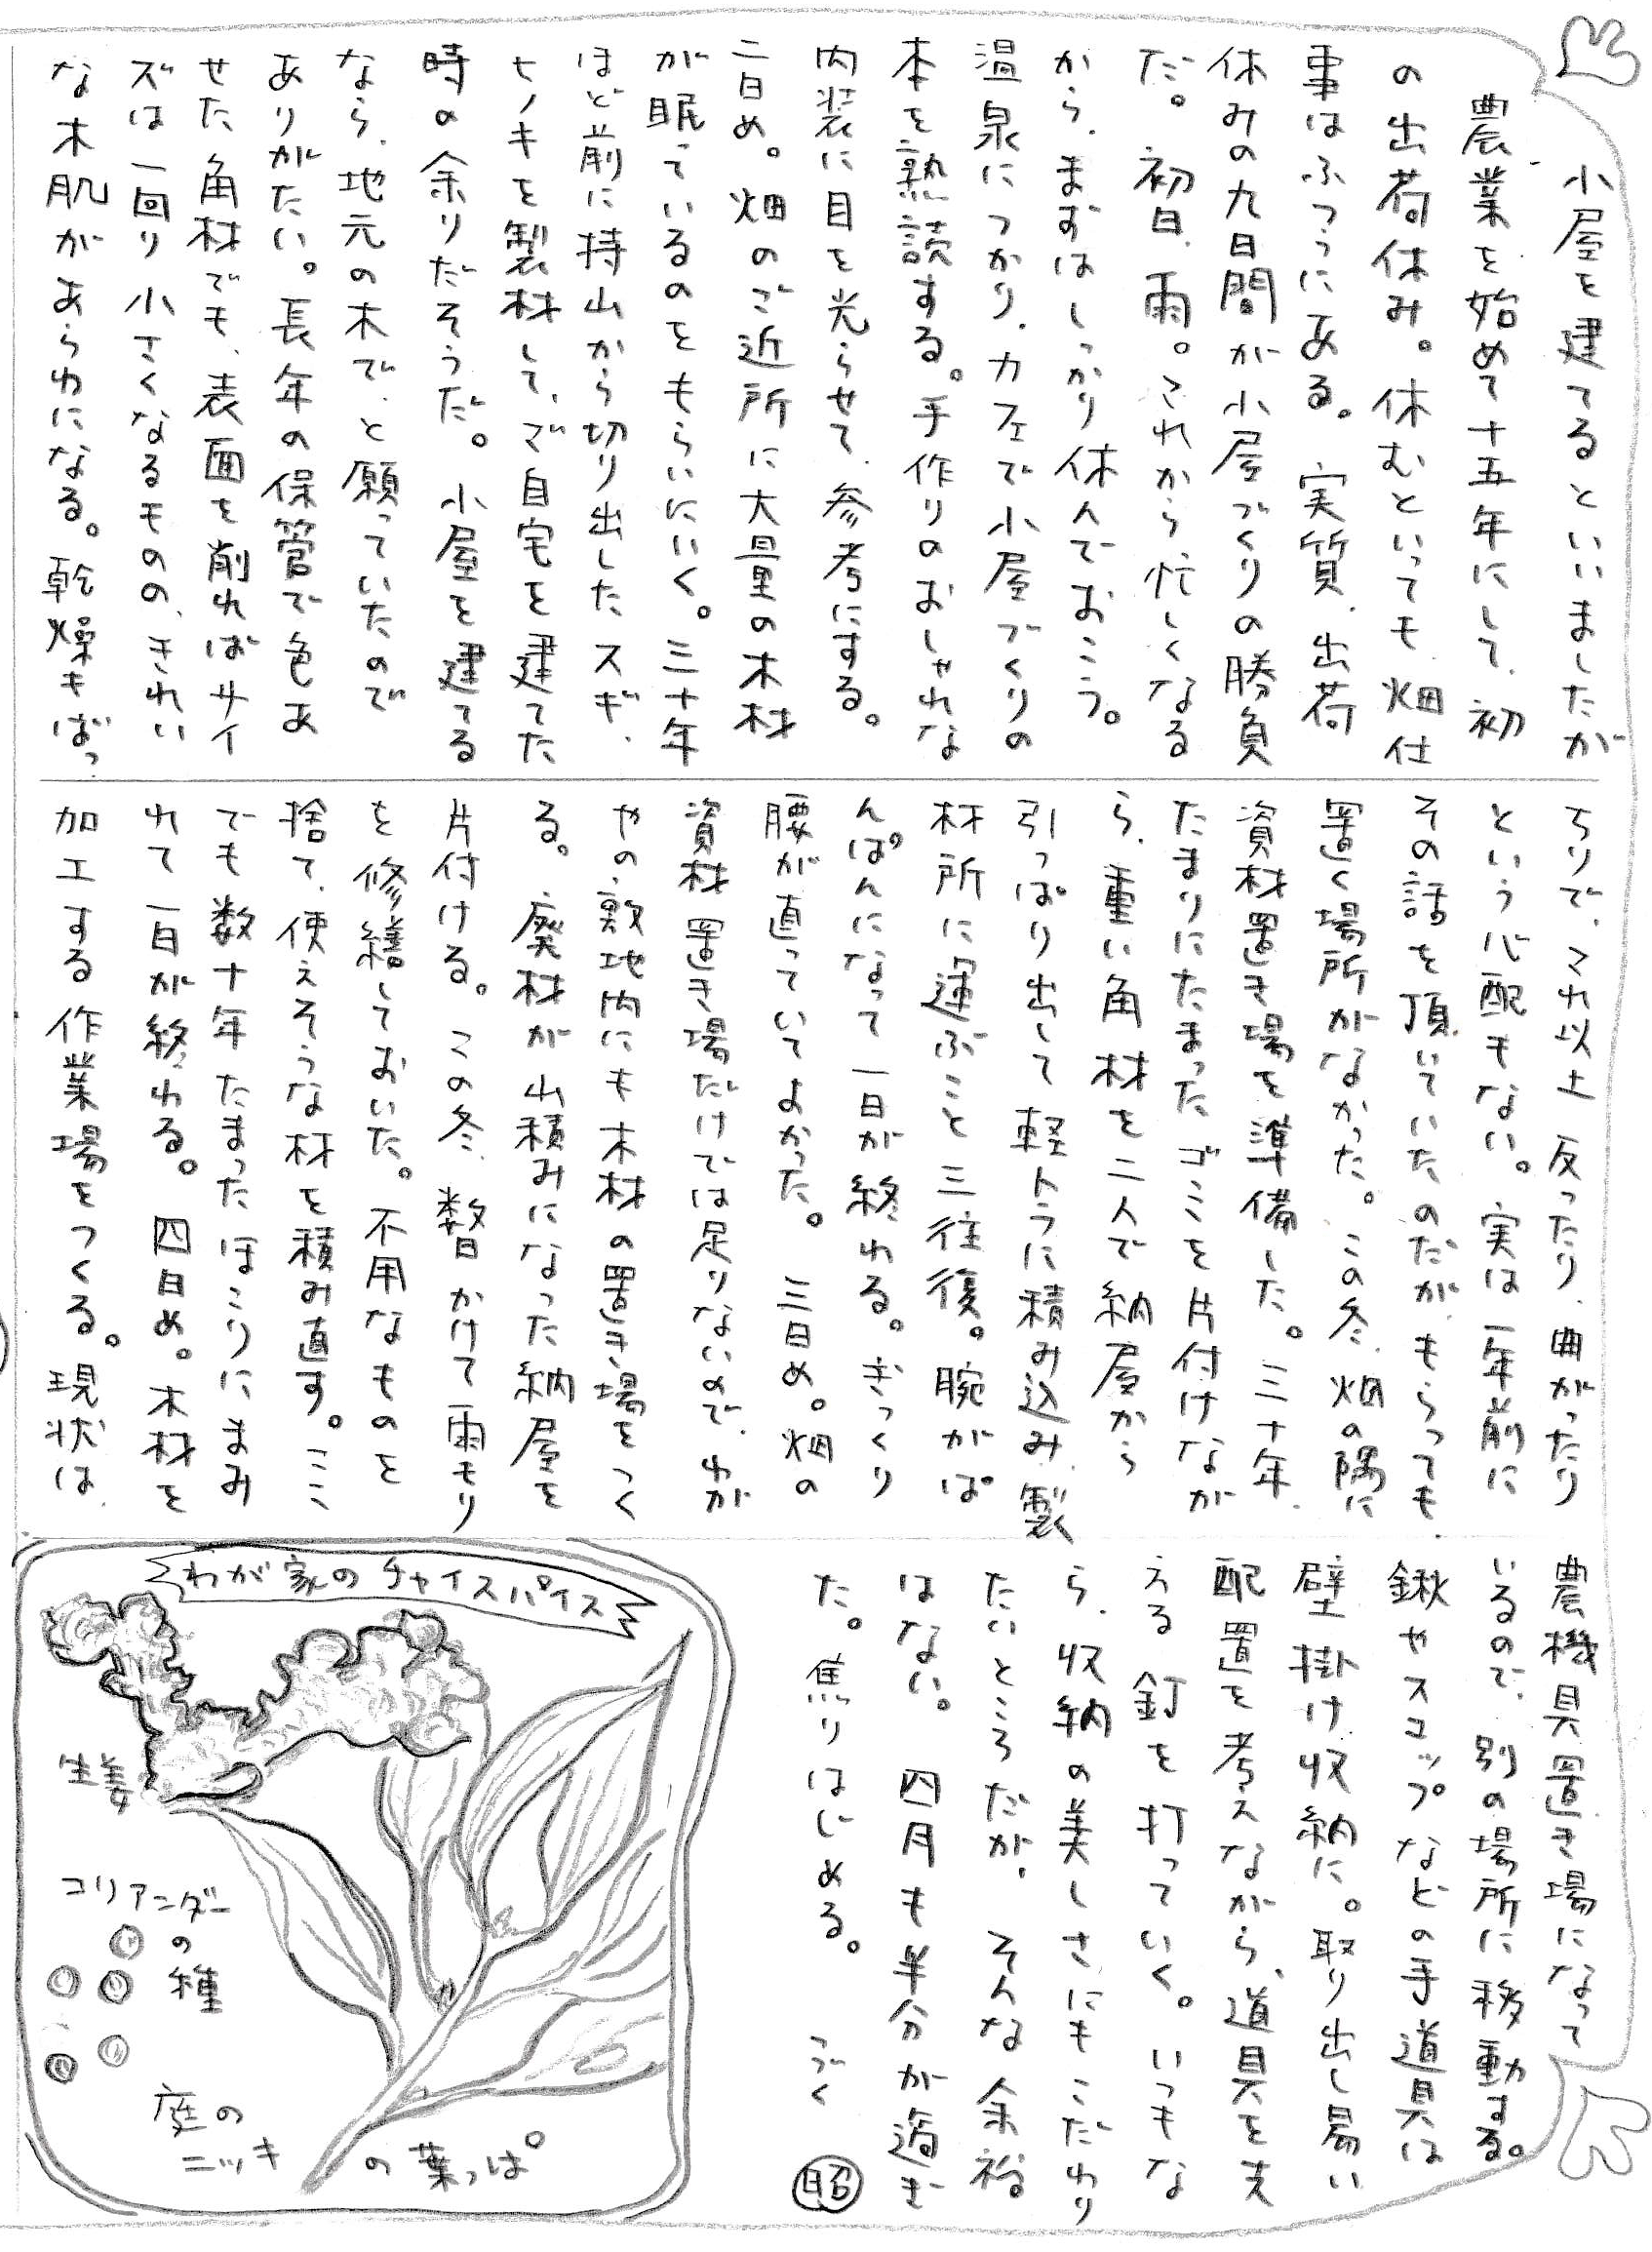 小屋を建てるといいましたが
農業を始めて十五年にして、初
の出荷休み。休むといっても畑仕
事はふつうにある。実質、出荷
休みの九日間が小屋づくりの勝負
だ。初日、雨。これから忙しくなる
から、まずはしっかり休んでおこう。
温泉につかり、カフェで小屋づくりの
本を熟読する。手作りのおしゃれな
内装に目を光らせて、参考にする。
二日め。畑のご近所に大量の木材
が眠っているのをもらいにいく。三十年
ほど前に持山から切り出したスギ、
ヒノキを製材して、ご自宅を建てた
時の余りだそうだ。小屋を建てる
なら、地元の木で、と願っていたので
ありがたい。長年の保管で色あ
せた角材でも、表面を削ればサイ
ズは一回り小さくなるものの、きれい
な木肌があらわになる。乾燥もばっ
ちりで、これ以上反ったり、曲がったり
という心配もない。実は一年前に
その話を頂いていたのだが、もらっても、
置く場所がなかった。この冬、畑の隅に
資材置き場を準備した。三十年、
たまりにたまったゴミを片付けなが
ら、重い角材を二人で納屋から
引っぱり出して軽トラに積み込み、製
材所に運ぶこと三往復。腕がぱ
んぱんになって一日が終わる。ぎっくり
腰が直っていてよかった。三日め。畑の
資材置き場だけでは足りないので、わが
やの敷地内にも木材の置き場をつく
る。廃材が山積みになった納屋を
片付ける。この冬、数日かけて雨もり
を修繕しておいた。不用なものを
捨て、使えそうな材を積み直す。ここ
でも数十年たまったほこりにまみ
れて一日が終わる。四日め。木材を
加工する作業場をつくる。現状は、
農機具置き場になって
いるので、別の場所に移動する。
鍬やスコップなどの手道具は
壁掛け収納に。取り出し易い
配置を考えながら、道具を支
える釘を打っていく。いつもな
ら、収納の美しさにもこだわり
たいところだが、そんな余裕
はない。四月も半分が過ぎ
た。焦りはじめる。 つづく
昭
わが家のチャイスパイス
生姜
コリアンダー
の種
庭の
ニッキ
の葉っぱ